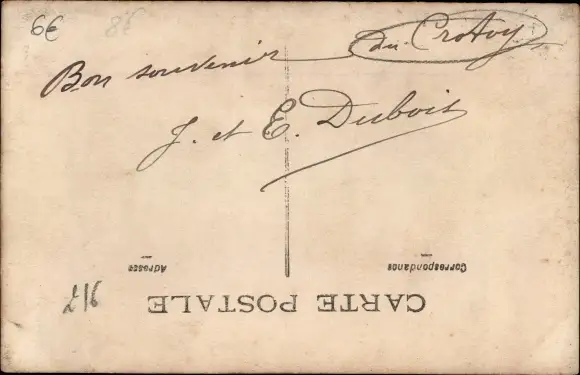 6€ 8€
Bon souvenir du Crotoy
J. et E. Dubois
Correspondance
Adresse
CARTE POSTALE